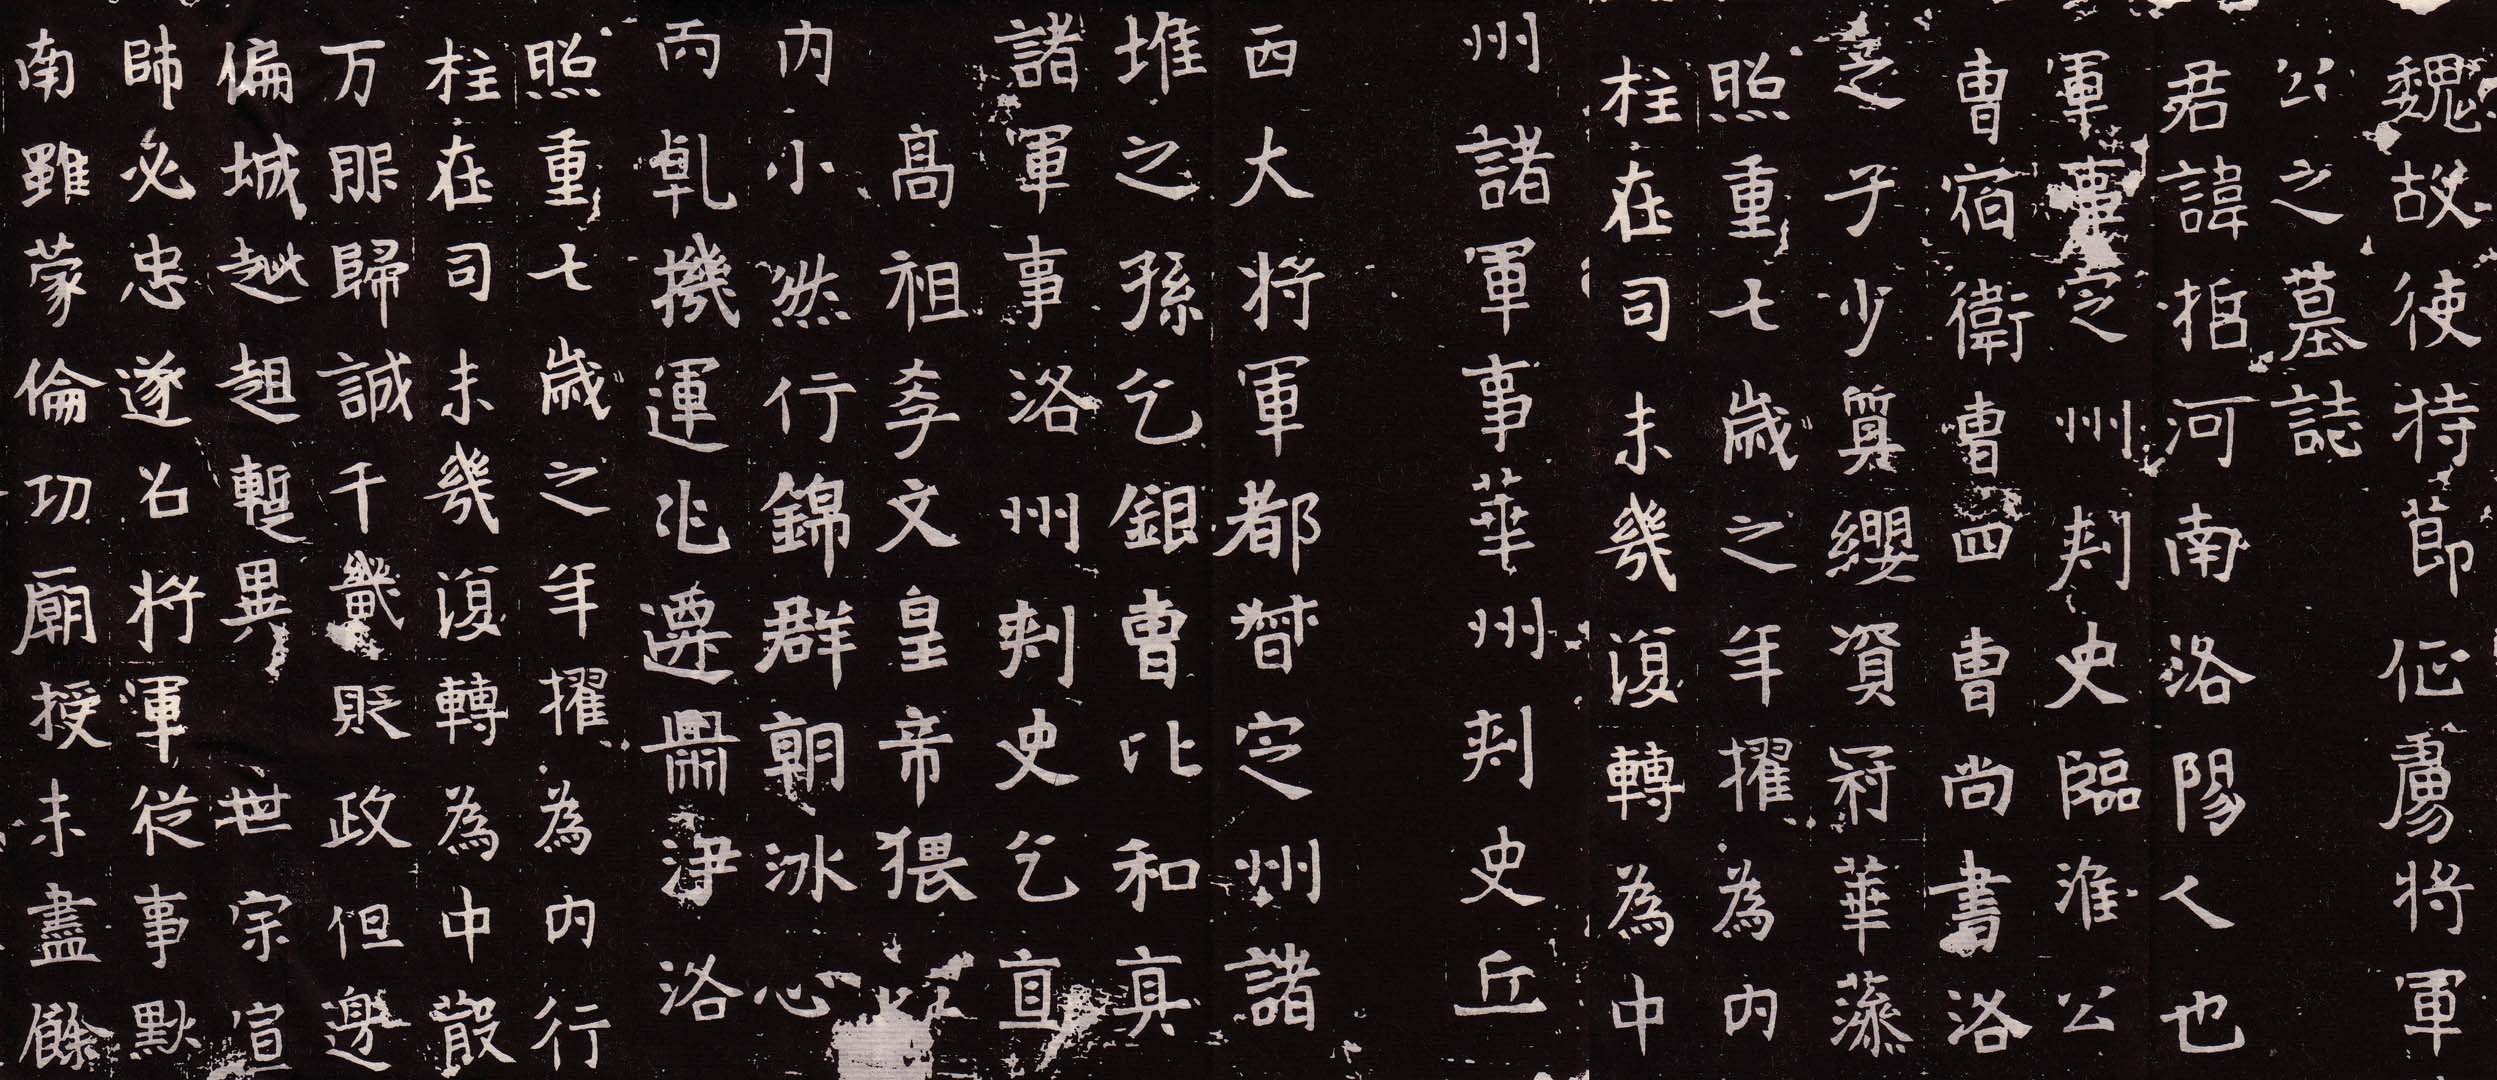 魏故使持節征虜將軍
公之墓誌
君諱哲河南洛陽人也
軍事定州刺史臨淮公
曹宿衛曹四曹尚書洛
之子少質纓資冠華蔭
照重七歲之年擢為內
柱在司未幾復轉為中
州諸軍事華州刺史丘
西大將軍都督定州諸
堆之孫乞銀曹比和真
諸軍事洛州刺史乞直
高祖孝文皇帝猥
內小然行錦群朝冰心
丙乹機運兆遷鼎淨洛
照重七歲之年擢為內行
柱在司未幾復轉為中散
万服歸誠千畿貶政但邊
偏城越趄暫異世宗宣
師必忠遂召將軍從事默
南雖蒙倫功廟授未盡餘